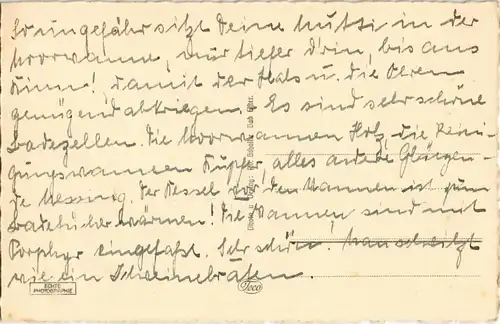 So ungefähr sitzt Deine Mutti in der
Moorwanne, nur tiefer drin, bis ans
Kinn! damit der Hals u. die Ohren
genügend abkriegen. Es sind sehr schöne
Badezellen. Die Moorwannen Holz, die Reini-
gungswannen Kupfer, alles andere Glänzen-
de Messing. Der Kessel vor den Wannen ist zum
Badetücherwärmen! Die Wannen sind mit
Porphyr eingefaßt. Sehr schön! Man schwitzt
wie ein Schweinebraten.
ECHTE
PHOTOGRAPHIE